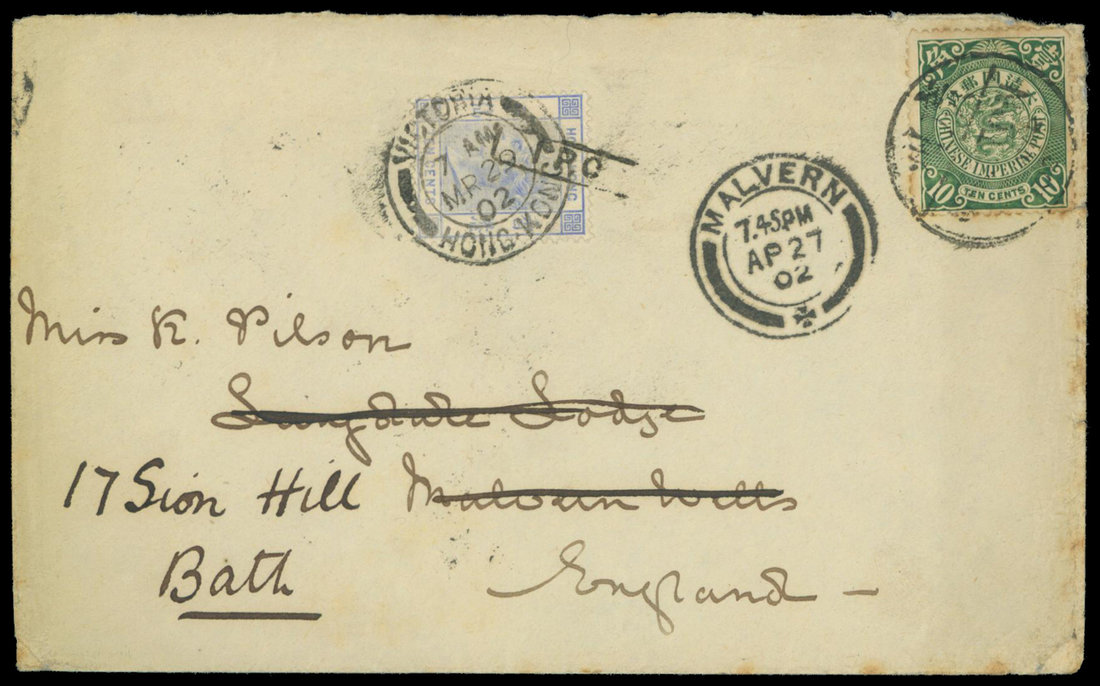 VICTORIA
7 AM
MR 29
02
HONG-KONG
CENTS
MALVERN
7.45PM
AP 27
02
CHINESE IMPERIAL POST
10 TEN CENTS 10
Miss K. Pilson
Lodge
17 Sion Hill Malvern Wells
Bath
England